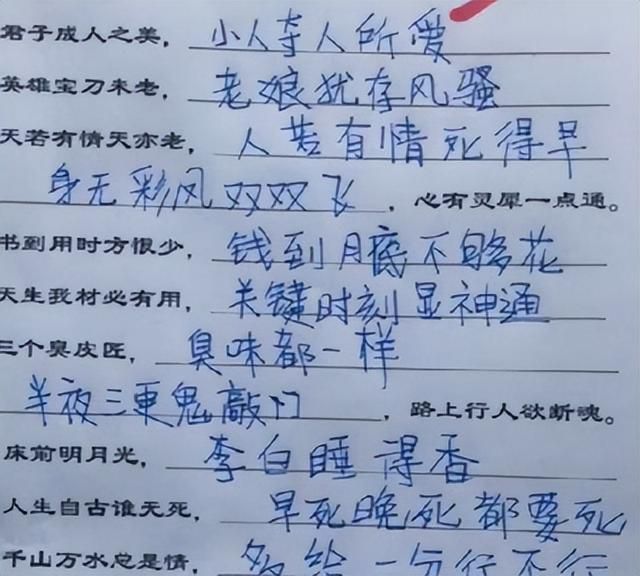 君子成人之美，小人夺人所爱
英雄宝刀未老，老娘犹存风骚
天若有情天亦老，人若有情死得早
身无彩凤双双飞，心有灵犀一点通。
书到用时方恨少，钱到月底不够花
天生我材必有用，关键时刻显神通
三个臭皮匠，臭味都一样
半夜三更鬼敲门，路上行人欲断魂。
床前明月光，李白睡得香
人生自古谁无死，早死晚死都要死
千山万水总是情，多给一分行不行